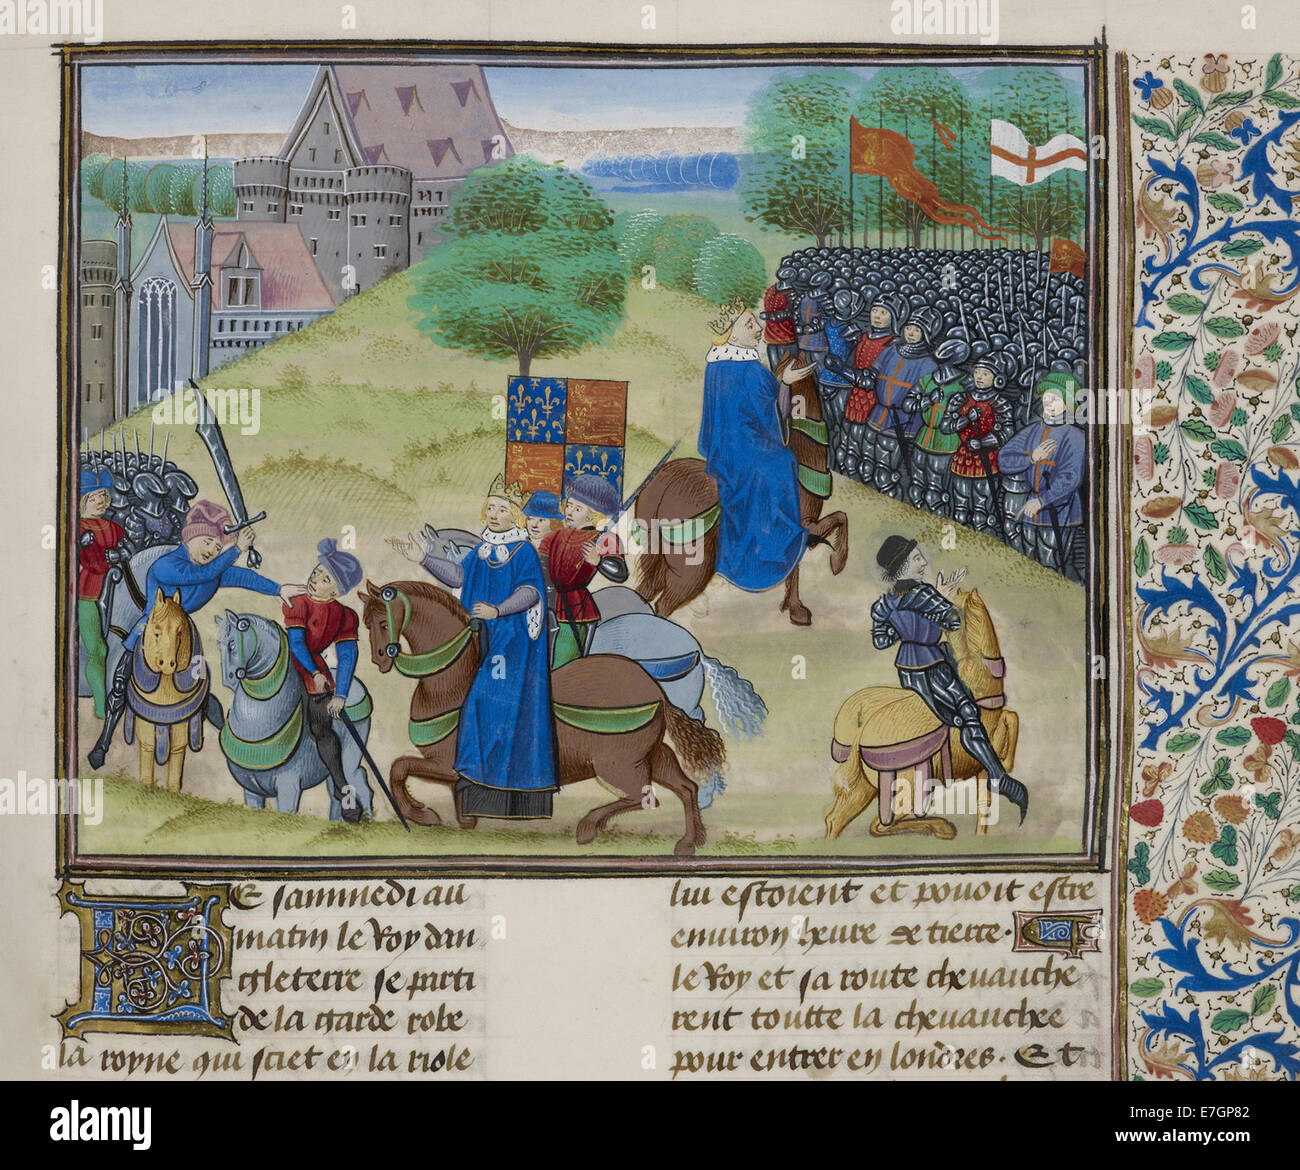 LE sammedi au
matin le Roy dan
gleterre se parti
de la garde robe
la royne qui sciet en la riole
lui estoient et pouoit estre
environ heure de tierce.
le Roy et sa route cheuauche
rent toutte la cheuauchee
pour entrer en londres. Et
alamy
www.alamy.com
E7GP82